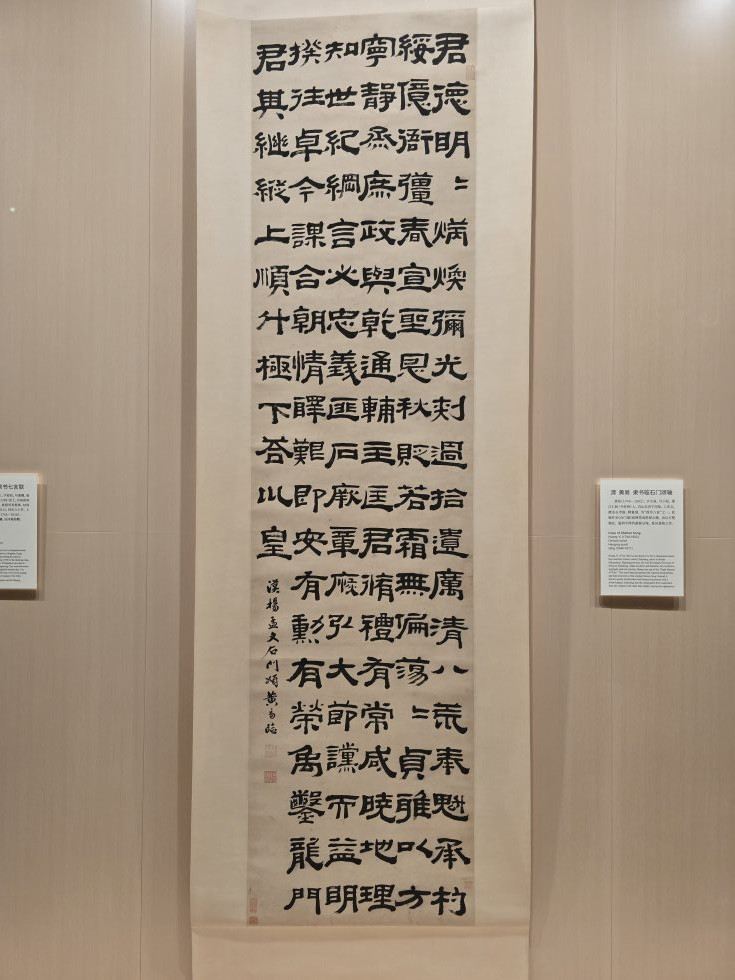 君德明〻炳煥彌光刺過拾遺厲清八荒奉魁承杓
綏億衙彊春宣聖恩秋貶若霜無偏蕩〻貞雅以方
寧靜烝庶政與乾通輔主匡君循禮有常咸曉地理
知世紀綱言必忠義匪石厥章恢弘大節讜而益明
揆往卓今謀合朝情醳艱即安有勳有榮禹鑿龍門
君其繼縱上順斗極下答巛皇
漢楊孟文石門頌黃易臨
书七言联
清 黄易 隶书临石门颂轴
Huang Yi (1744-1802)
Clerical script
Hanging scroll
Qing (1644-1911)